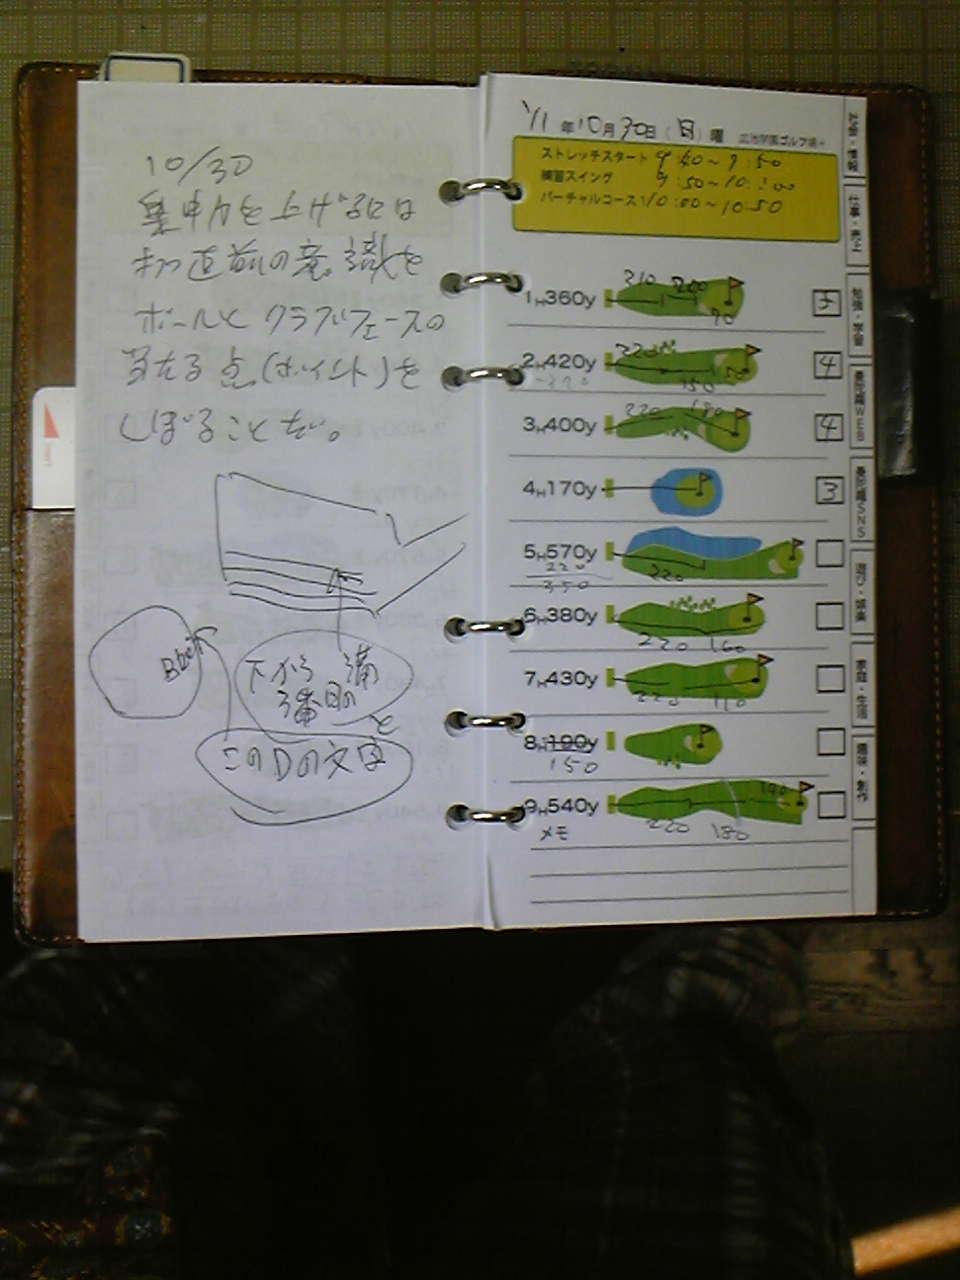 10/30
集中力を上げるには
打つ直前の意識を
ボールとクラブフェースの
当たる点(ポイント)を
しぼることだ。
下から
3番目の
溝
と
このDの文字
'11年10月30日(日)曜
ストレッチスタート 9:40~9:50
練習スイング 9:50~10:00
バーチャルコース 10:00~10:50
1H360y 210 200 70 5
2H420y 220 150 50 4
3H400y 220 180 4
4H170y 3
5H570y 220
220
350
6H380y 220 160
7H430y 220 110
8H190y
150
9H540y 220 180 140
メモ
社会・情報
仕事・売上
勉強・学習
曼陀羅WEB
曼陀羅SNS
遊び・娯楽
家庭・生活
趣味・創作